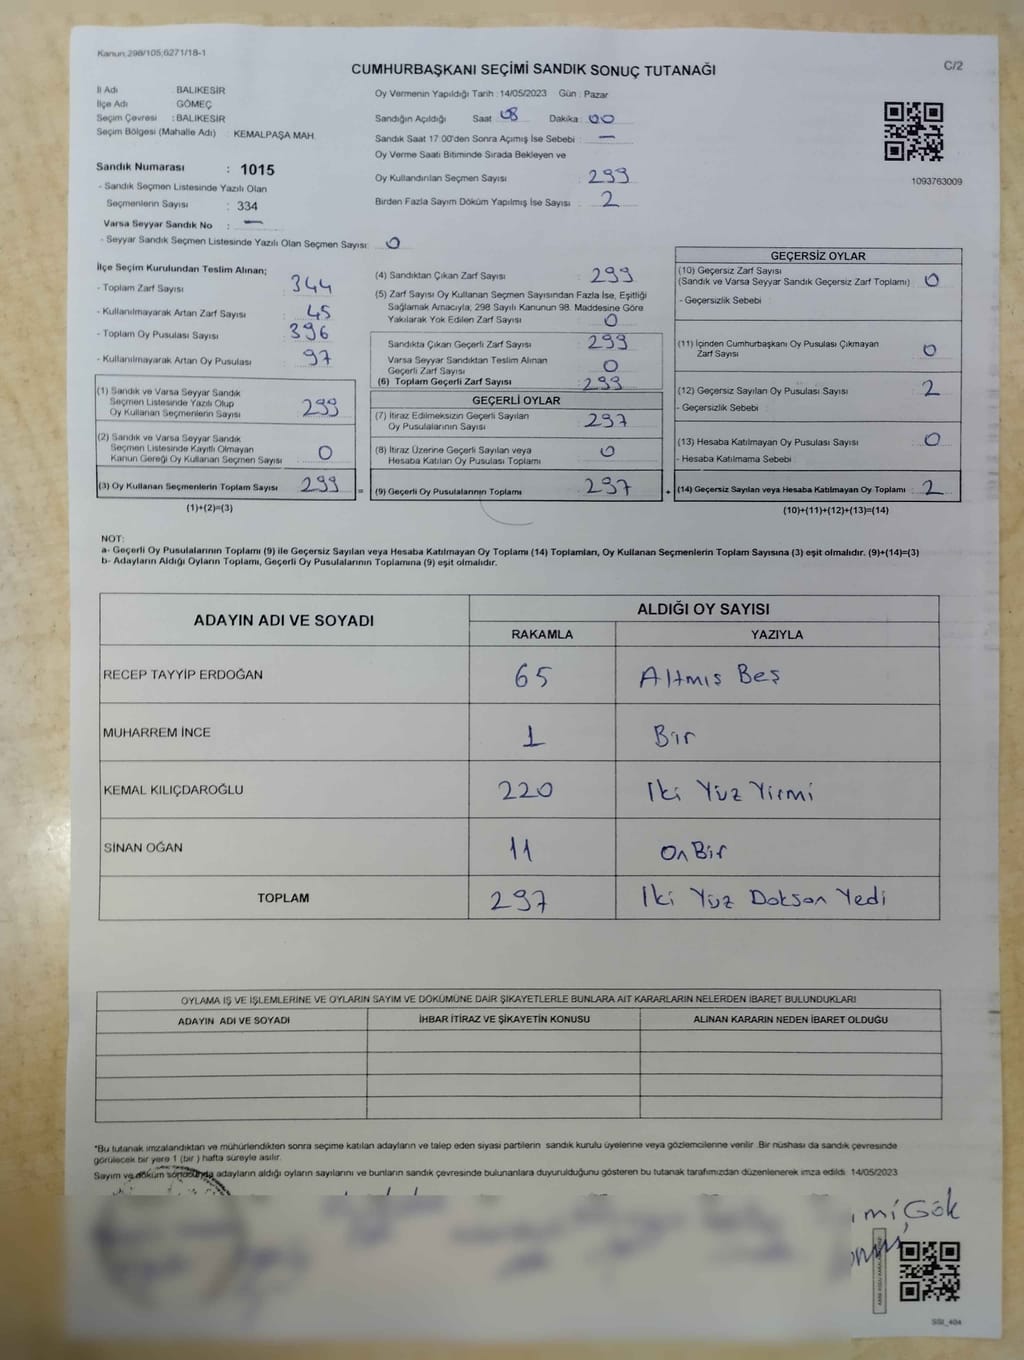 Kanun:298/105;6271/18-1
C/2
CUMHURBAŞKANI SEÇİMİ SANDIK SONUÇ TUTANAĞI
İl Adı : BALIKESİR
İlçe Adı : GÖMEÇ
Seçim Çevresi : BALIKESİR
Seçim Bölgesi (Mahalle Adı) : KEMALPAŞA MAH.
Sandık Numarası : 1015
- Sandık Seçmen Listesinde Yazılı Olan
Seçmenlerin Sayısı : 334
Varsa Seyyar Sandık No : —
- Seyyar Sandık Seçmen Listesinde Yazılı Olan Seçmen Sayısı: 0
Oy Vermenin Yapıldığı Tarih : 14/05/2023 Gün : Pazar
Sandığın Açıldığı Saat 08 Dakika 00
Sandık Saat 17:00'den Sonra Açımış İse Sebebi : —
Oy Verme Saati Bitiminde Sırada Bekleyen ve
Oy Kullandırılan Seçmen Sayısı : 299
Birden Fazla Sayım Döküm Yapılmış İse Sayısı : 2
1093763009
İlçe Seçim Kurulundan Teslim Alınan;
- Toplam Zarf Sayısı : 344
- Kullanılmayarak Artan Zarf Sayısı : 45
- Toplam Oy Pusulası Sayısı : 396
- Kullanılmayarak Artan Oy Pusulası : 97
(1) Sandık ve Varsa Seyyar Sandık
Seçmen Listesinde Yazılı Olup
Oy Kullanan Seçmenlerin Sayısı : 299
(2) Sandık ve Varsa Seyyar Sandık
Seçmen Listesinde Kayıtlı Olmayan
Kanun Gereği Oy Kullanan Seçmen Sayısı : 0
(3) Oy Kullanan Seçmenlerin Toplam Sayısı : 299
(1)+(2)=(3)
(4) Sandıktan Çıkan Zarf Sayısı : 299
(5) Zarf Sayısı Oy Kullanan Seçmen Sayısından Fazla İse, Eşitliği
Sağlamak Amacıyla; 298 Sayılı Kanunun 98. Maddesine Göre
Yakılarak Yok Edilen Zarf Sayısı : 0
Sandıkta Çıkan Geçerli Zarf Sayısı : 299
Varsa Seyyar Sandıktan Teslim Alınan
Geçerli Zarf Sayısı : 0
(6) Toplam Geçerli Zarf Sayısı : 299
GEÇERLİ OYLAR
(7) İtiraz Edilmeksizin Geçerli Sayılan
Oy Pusulalarının Sayısı : 297
(8) İtiraz Üzerine Geçerli Sayılan veya
Hesaba Katılan Oy Pusulası Toplamı : 0
= (9) Geçerli Oy Pusulalarının Toplamı : 297
GEÇERSİZ OYLAR
(10) Geçersiz Zarf Sayısı
(Sandık ve Varsa Seyyar Sandık Geçersiz Zarf Toplamı) : 0
- Geçersizlik Sebebi
(11) İçinden Cumhurbaşkanı Oy Pusulası Çıkmayan
Zarf Sayısı : 0
(12) Geçersiz Sayılan Oy Pusulası Sayısı : 2
- Geçersizlik Sebebi :
(13) Hesaba Katılmayan Oy Pusulası Sayısı : 0
- Hesaba Katılmama Sebebi :
+ (14) Geçersiz Sayılan veya Hesaba Katılmayan Oy Toplamı : 2
(10)+(11)+(12)+(13)=(14)
NOT:
a- Geçerli Oy Pusulalarının Toplamı (9) ile Geçersiz Sayılan veya Hesaba Katılmayan Oy Toplamı (14) Toplamları, Oy Kullanan Seçmenlerin Toplam Sayısına (3) eşit olmalıdır. (9)+(14)=(3)
b- Adayların Aldığı Oyların Toplamı, Geçerli Oy Pusulalarının Toplamına (9) eşit olmalıdır.
ADAYIN ADI VE SOYADI ALDIĞI OY SAYISI
RAKAMLA YAZIYLA
RECEP TAYYİP ERDOĞAN 65 Altmış Beş
MUHARREM İNCE 1 Bir
KEMAL KILIÇDAROĞLU 220 İki Yüz Yirmi
SİNAN OĞAN 11 On Bir
TOPLAM 297 İki Yüz Doksan Yedi
OYLAMA İŞ VE İŞLEMLERİNE VE OYLARIN SAYIM VE DÖKÜMÜNE DAİR ŞİKAYETLERLE BUNLARA AİT KARARLARIN NELERDEN İBARET BULUNDUKLARI
ADAYIN ADI VE SOYADI İHBAR İTİRAZ VE ŞİKAYETİN KONUSU ALINAN KARARIN NEDEN İBARET OLDUĞU
*Bu tutanak imzalandıktan ve mühürlendikten sonra seçime katılan adayların ve talep eden siyasi partilerin sandık kurulu üyelerine veya gözlemcilerine verilir. Bir nüshası da sandık çevresinde
görülecek bir yere 1 (bir) hafta süreyle asılır.
Sayım ve döküm sonucunda adayların aldığı oyların sayılarını ve bunların sandık çevresinde bulunanlara duyurulduğunu gösteren bu tutanak tarafımızdan düzenlenerek imza edildi. 14/05/2023
Gök
SSI_404